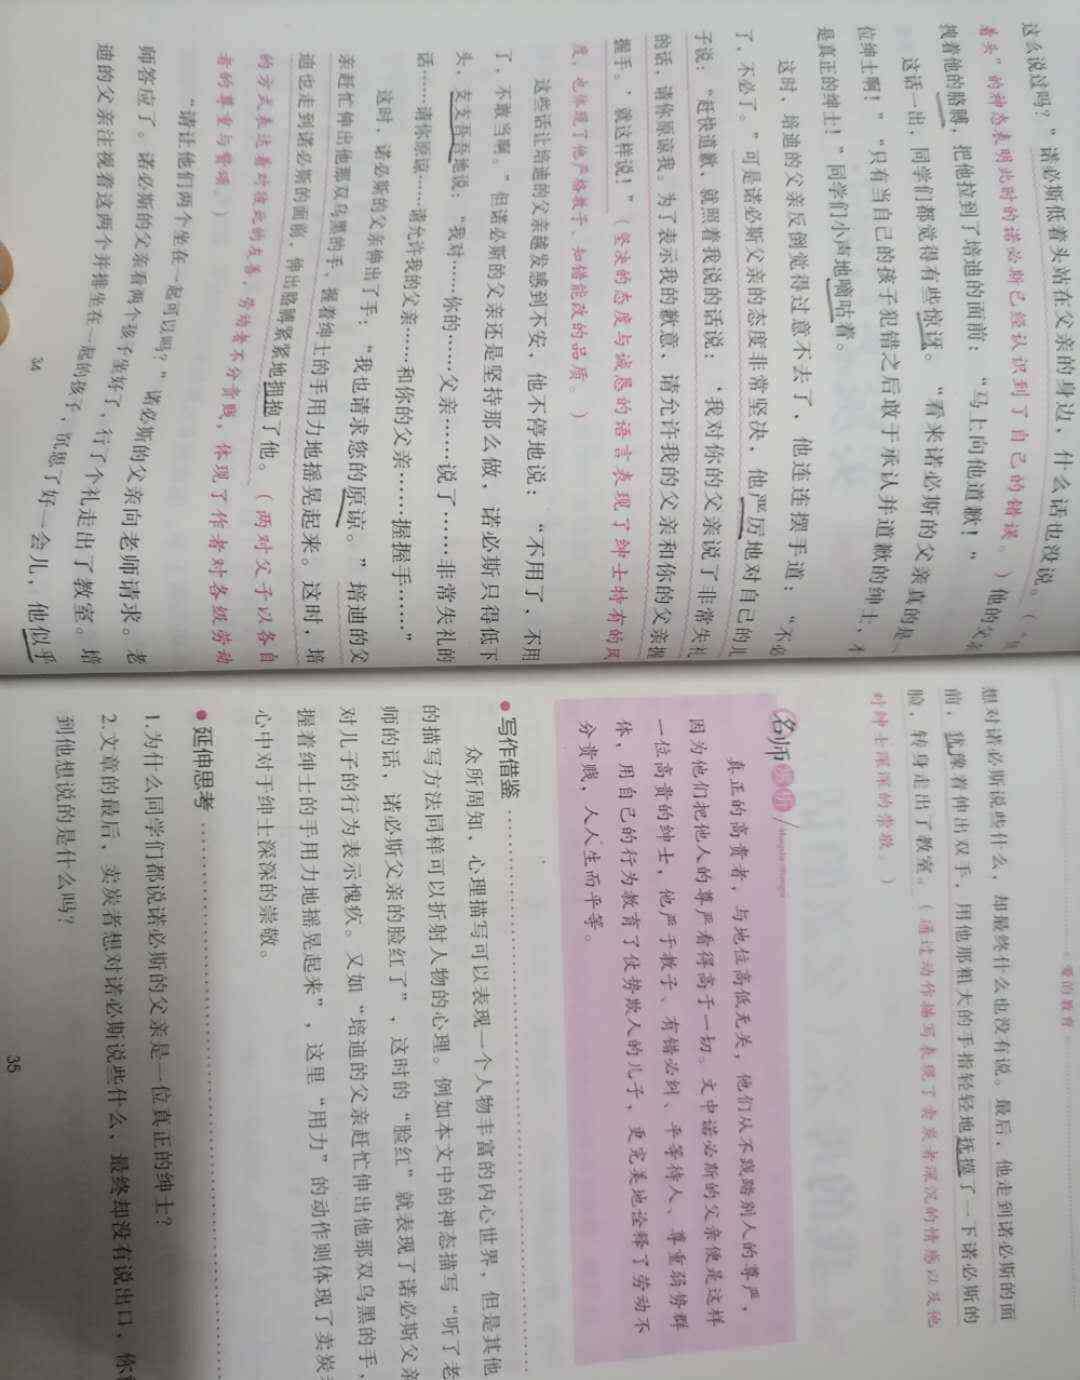 这么说过吗？”诺必斯低着头站在父亲的身边，什么话也没说。（“
着头”的神态表明此时的诺必斯已经认识到了自己的错误。）他的父亲
拽着他的胳膊，把他拉到了培迪的面前：“马上向他道歉！”
这话一出，同学们都觉得有些惊讶。“看来诺必斯的父亲真的是一
位绅士啊！”“只有当自己的孩子犯错之后敢于承认并道歉的绅士，才
是真正的绅士！”同学们小声地嘀咕着。
这时，培迪的父亲反倒觉得过意不去了，他连连摆手道：“不必
了，不必了。”可是诺必斯父亲的态度非常坚决，他严厉地对自己的儿
子说：“赶快道歉，就照着我说的话说：‘我对你的父亲说了非常失礼
的话，请你原谅我。为了表示我的歉意，请允许我的父亲和你的父亲握
握手。’就这样说！”（坚决的态度与诚恳的语言表现了绅士特有的风
度，也体现了他严格教子，知错能改的品质。）
这些话让培迪的父亲越发感到不安，他不停地说：“不用了，不用
了，不敢当啊。”但诺必斯的父亲还是坚持那么做，诺必斯只得低下
头，支支吾吾地说：“我对……你的……父亲……说了……非常失礼的
话……请你原谅……请允许我的父亲……和你的父亲……握握手……”
这时，诺必斯的父亲伸出了手：“我也请求您的原谅。”培迪的父
亲赶忙伸出他那双乌黑的手，握着绅士的手用力地摇晃起来。这时，培
迪也走到诺必斯的面前，伸出胳膊紧紧地拥抱了他。（两对父子以各自
的方式表达着对彼此的友善，劳动者不分贵贱，体现了作者对各级劳动
者的尊重与赞颂。）
“请让他们两个坐在一起可以吗？”诺必斯的父亲向老师请求。老
师答应了。诺必斯的父亲看两个孩子坐好了，行了个礼走出了教室。培
迪的父亲注视着这两个并排坐在一起的孩子，沉思了好一会儿，他似乎
34
爱的教育
想对诺必斯说些什么，却最终什么也没有说。最后，他走到诺必斯的面
前，犹豫着伸出双手，用他那粗大的手指轻轻地抚摸了一下诺必斯的
脸，转身走出了教室。（通过动作描写表现了卖炭者深沉的情感以及他
对绅士深深的崇敬。）
名师
真正的高贵者，与地位高低无关，他们从不践踏别人的尊严，
因为他们把他人的尊严看得高于一切。文中诺必斯的父亲便是这样
一位高贵的绅士，他严于教子、有错必纠、平等待人、尊重弱势群
体，用自己的行为教育了仗势欺人的儿子，更完美地诠释了劳动不
分贵贱，人人生而平等。
●写作借鉴
众所周知，心理描写可以表现一个人物丰富的内心世界，但是其他
的描写方法同样可以折射人物的心理。例如本文中的神态描写“听了老
师的话，诺必斯父亲的脸红了”，这时的“脸红”就表现了诺必斯父亲
对儿子的行为表示愧疚。又如“培迪的父亲赶忙伸出他那双乌黑的手，
握着绅士的手用力地摇晃起来”，这里“用力”的动作则体现了卖炭
心中对于绅士深深的崇敬。
●延伸思考
1.为什么同学们都说诺必斯的父亲是一位真正的绅士？
2.文章的最后，卖炭者想对诺必斯说些什么，最终却没有说出口，你
到他想说的是什么吗？
35